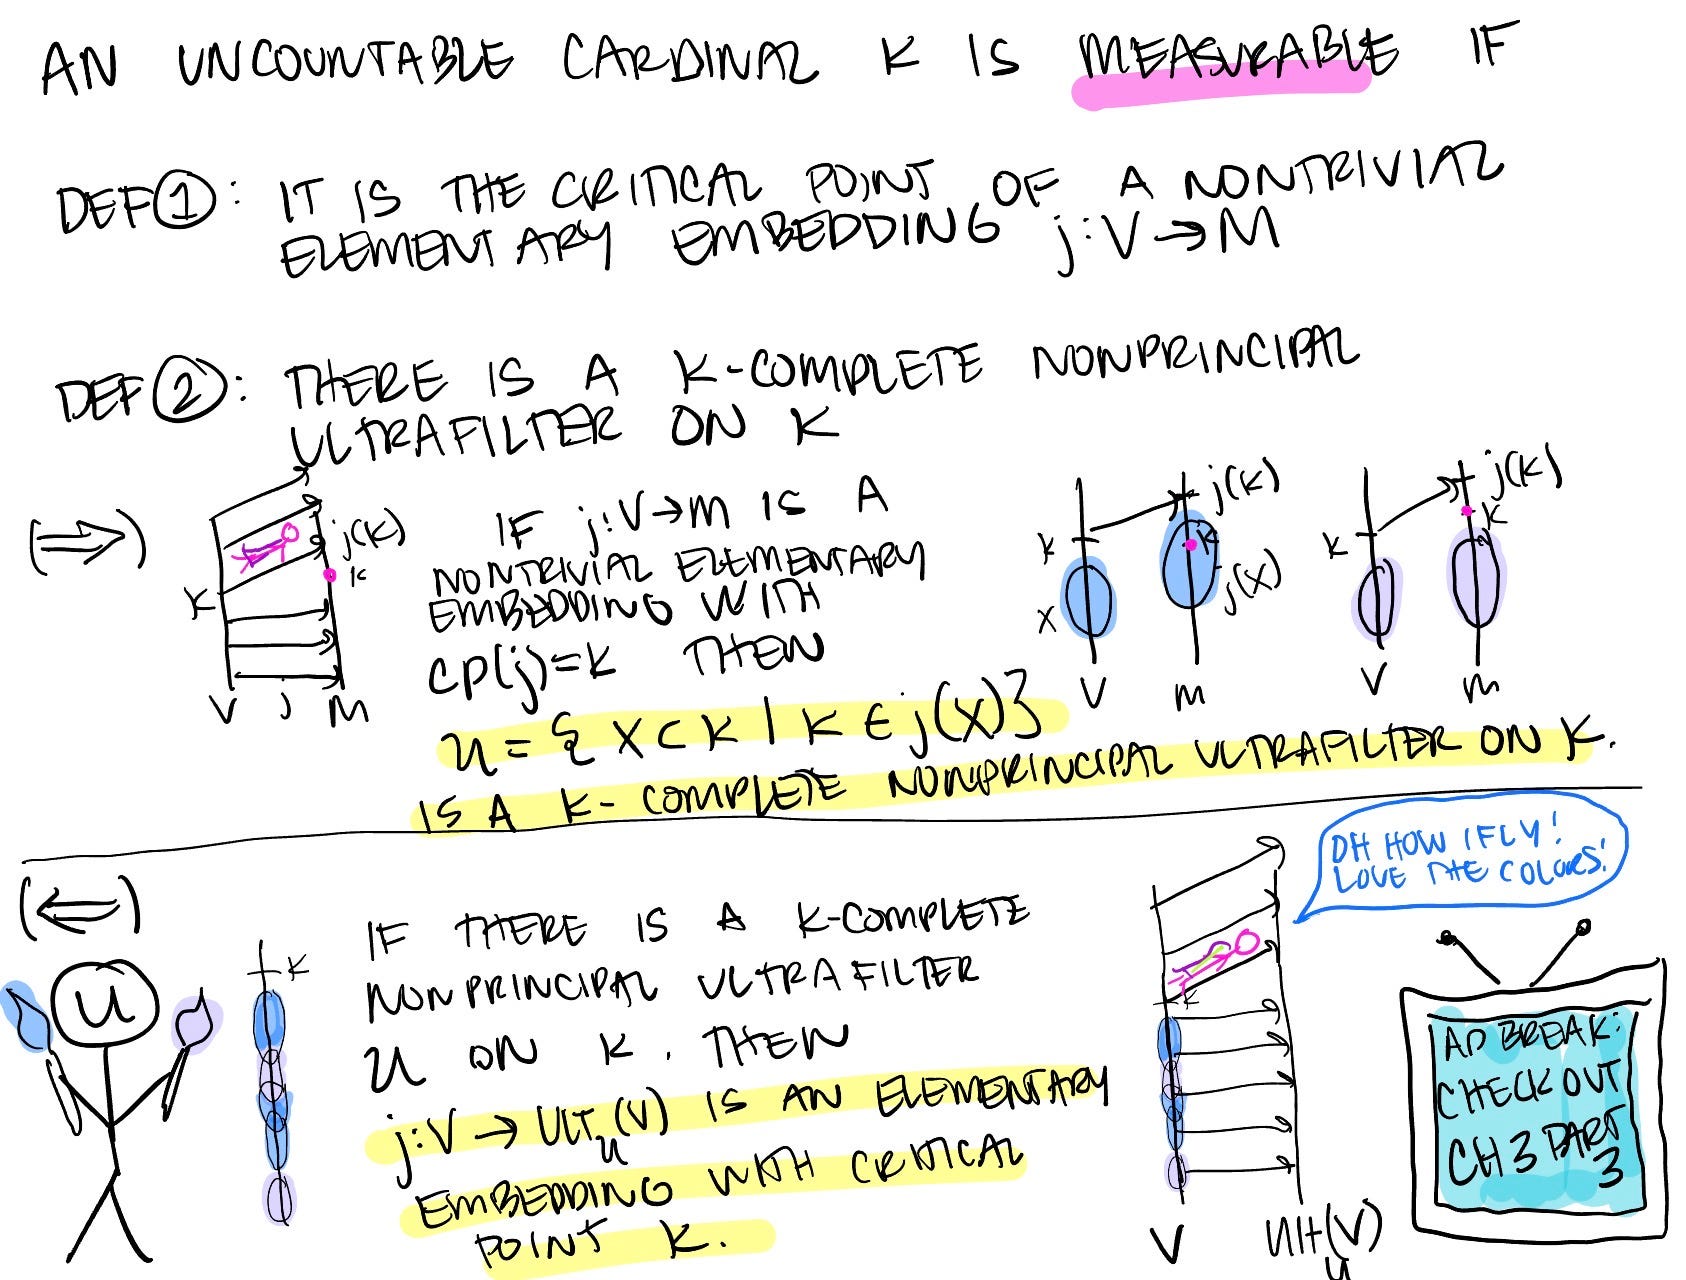 AN UNCOUNTABLE CARDINAL K IS MEASURABLE IF
DEF ①: IT IS THE CRITICAL POINT OF A NONTRIVIAL
ELEMENTARY EMBEDDING j:V→M
DEF ②: THERE IS A K-COMPLETE NONPRINCIPAL
ULTRAFILTER ON K
(⇒)
j(K)
K
K
V j M
IF j:V→M IS A
NONTRIVIAL ELEMENTARY
EMBEDDING WITH
CP(j)=K THEN
U = { X ⊂ K | K ∈ j(X)}
IS A K-COMPLETE NONPRINCIPAL ULTRAFILTER ON K.
j(K)
K
K
X
j(X)
V M
j(K)
K
K
V M
(⇐)
U
K
IF THERE IS A K-COMPLETE
NONPRINCIPAL ULTRAFILTER
U ON K, THEN
j:V → ULT_U(V) IS AN ELEMENTARY
EMBEDDING WITH CRITICAL
POINT K.
K
V Ult_U(V)
OH HOW I FLY!
LOVE THE COLOURS!
AD BREAK:
CHECK OUT
CH 3 PART
3